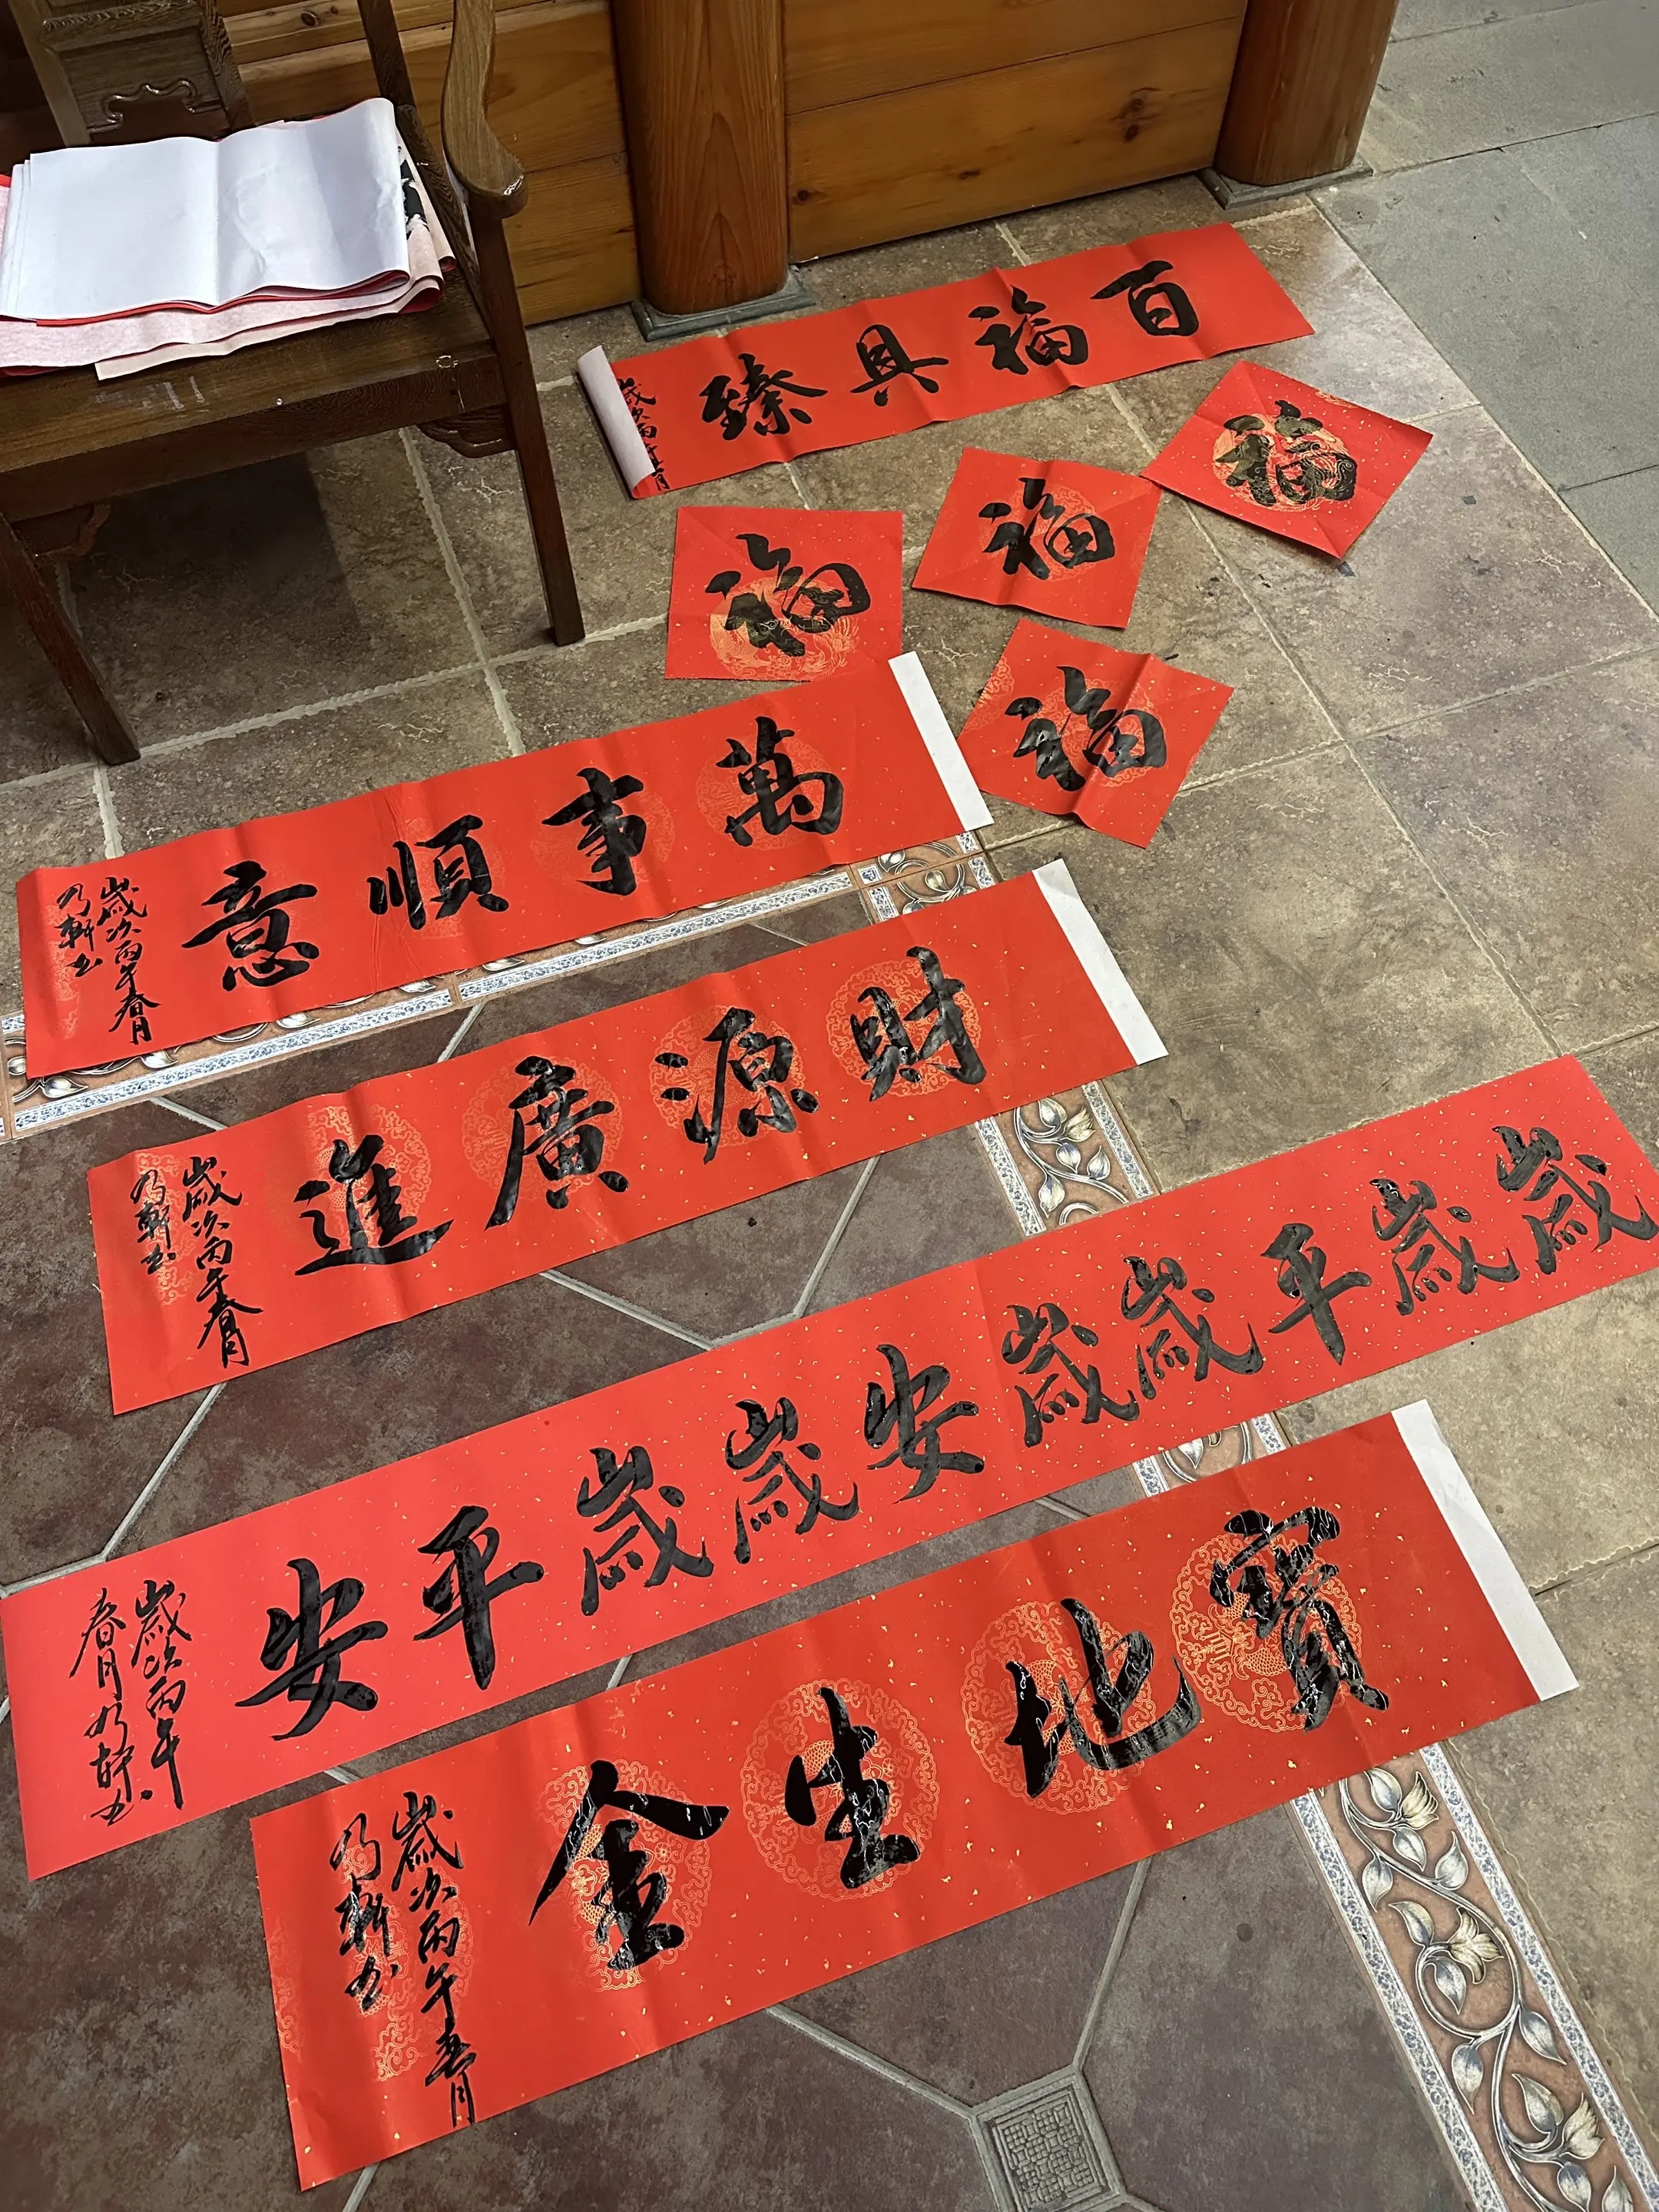 百福具臻
歲次丙午春月
福
福
福
福
萬事順意
歲次丙午春月
乃軒书
財源廣進
歲次丙午春月
乃軒书
歲歲平歲歲安歲歲平安
歲次丙午
春月乃軒书
寶地生金
歲次丙午春月
乃軒书